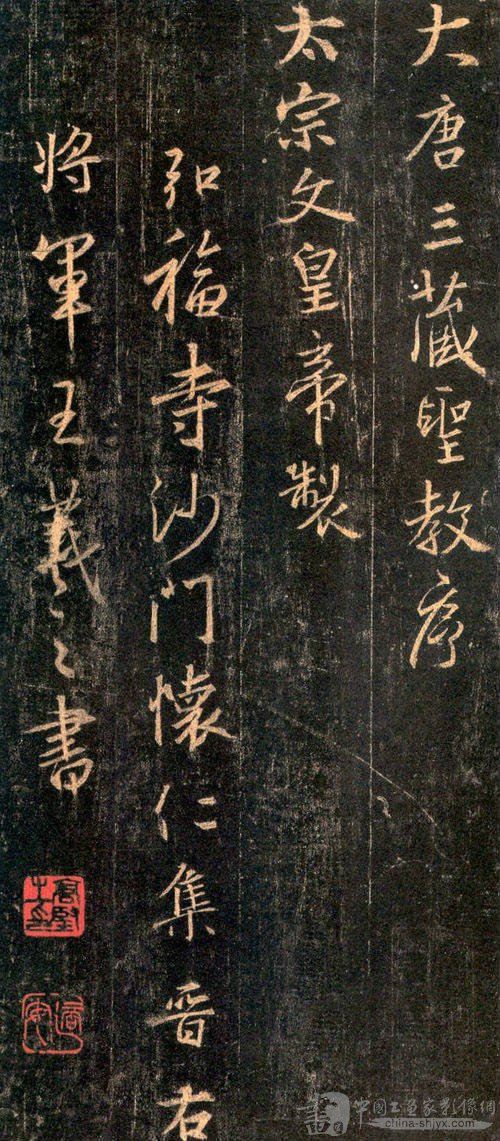 大唐三藏聖教序
太宗文皇帝製
弘福寺沙門懷仁集晉右
將軍王羲之書
中国书画家影像網
www.china-shjyx.com